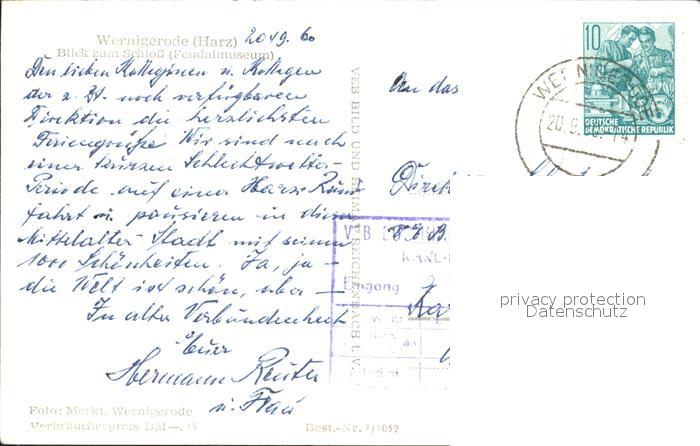 Wernigerode (Harz) 20.9.60
Blick zum Schloß (Feudalmuseum)
Den lieben Kolleginnen u. Kollegen
der z. Zt. noch verfügbaren
Direktion die herzlichsten
Feriengrüße. Wir sind nach
einer kurzen Schlechtwetter-
Periode auf einer Harz-Rund
fahrt u. pausieren in dieser
Mittelalter-Stadt mit seinen
1000 Schönheiten. Ja, ja –
die Welt ist schön, aber –
In alter Verbundenheit
Euer
Hermann Reuter
u. Frau
Foto: Merkt. Wernigerode
Verbraucherpreis DM —.15
Best.-Nr. 7/1052
VEB BILD UND HEIMAT REICHENBACH I. V.
An das
Direk
VEB
Eingang
10
DEUTSCHE
DEMOKRATISCHE REPUBLIK
WERNIGERODE
20.9.
privacy protection
Datenschutz